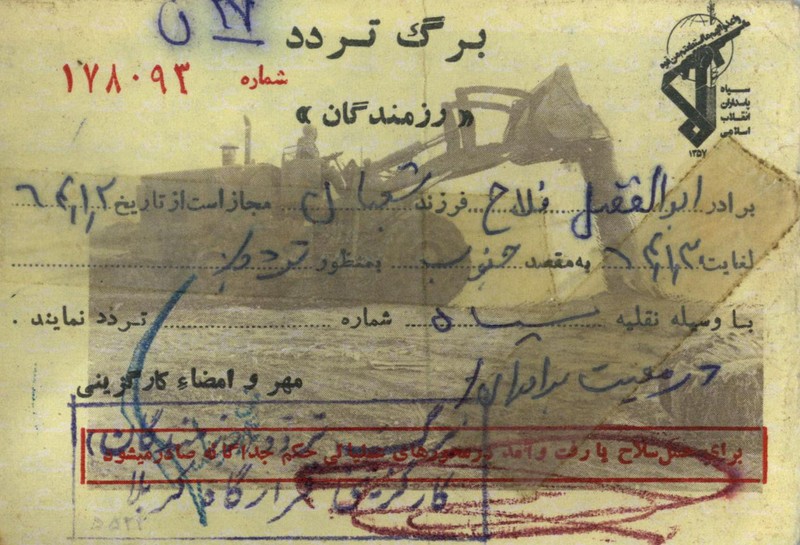 ۲۷ ن
برگ تردد
شماره ۱۷۸۰۹۳
« رزمندگان »
سپاه
پاسداران
انقلاب
اسلامی
۱۳۵۷
برادر ابوالفضل فلاح فرزند شعبان مجاز است از تاریخ
لغایت به مقصد جنوب بمنظور تردد
با وسیله نقلیه سپاه شماره تردد نمایند .
در معیت برادران
مهر و امضاء کارگزینی
برگ تردد رزمندگان
برای حمل سلاح یا رفت و آمد در محورهای عملیاتی حکم جداگانه صادر میشود
کارگزینی قرارگاه کربلا